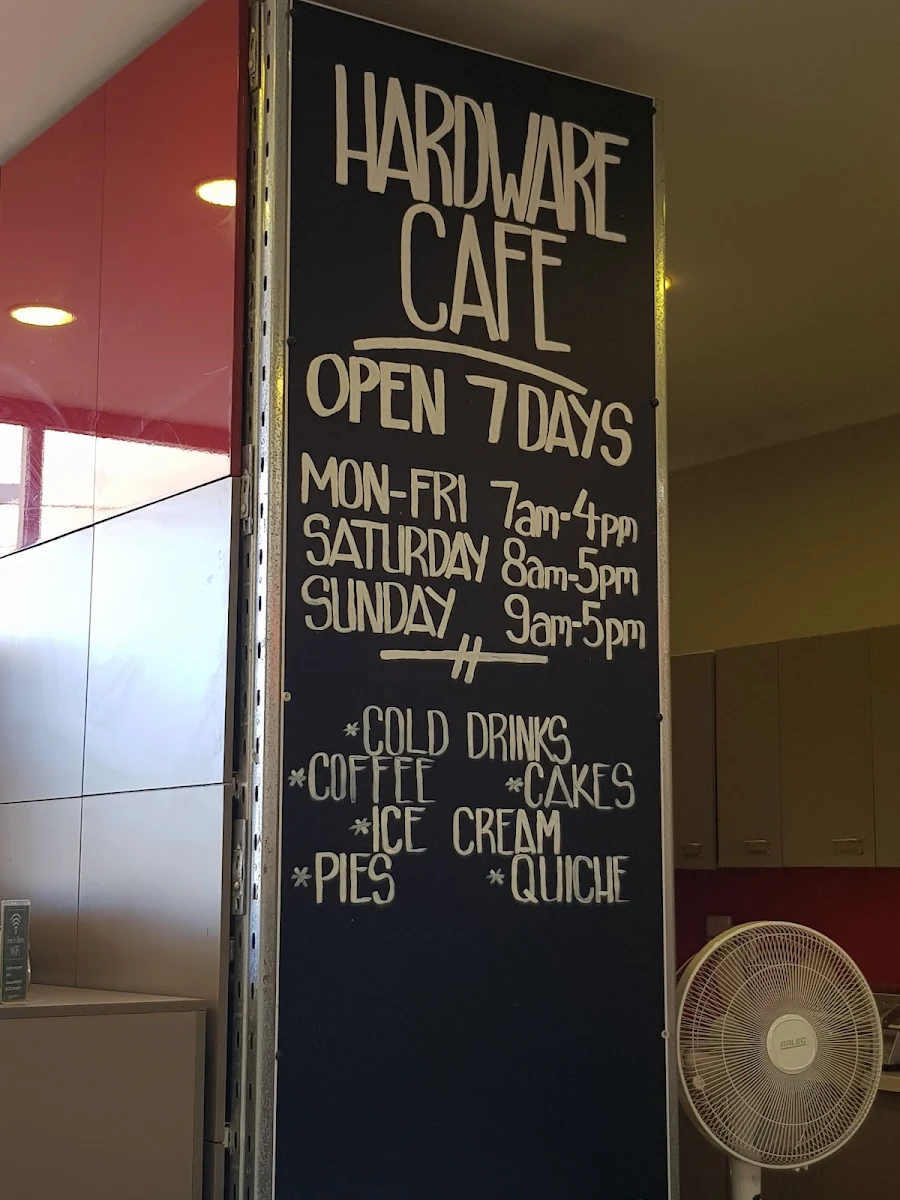 HARDWARE
CAFE
OPEN 7 DAYS
MON-FRI 7am-4pm
SATURDAY 8am-5pm
SUNDAY 9am-5pm
*COLD DRINKS
*COFFEE *CAKES
*ICE CREAM
*PIES *QUICHE
WiFi
ARLEC